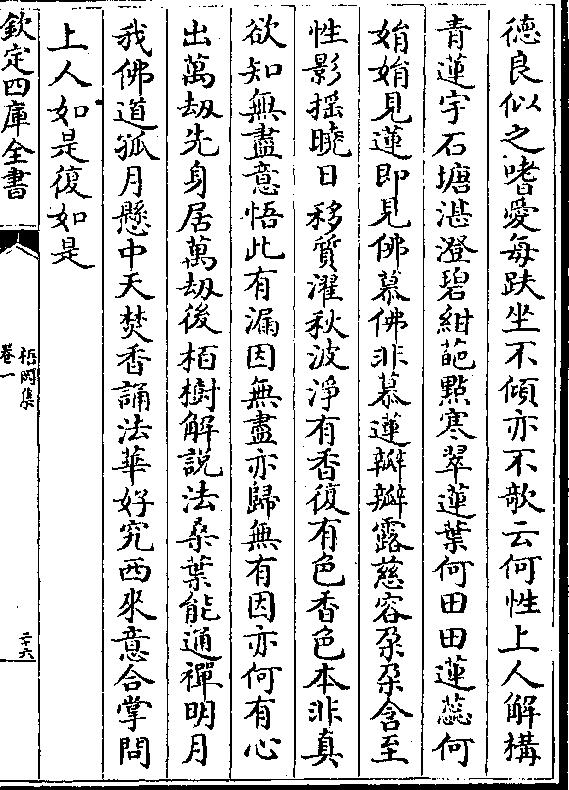 德良似之嗜愛每趺坐不傾亦不欹云何性上人解構
青蓮宇石塘湛澄碧紺葩點寒翠蓮葉何田田蓮蕊何
娟娟見蓮即見佛慕佛非慕蓮瓣瓣露慈容朶朶含至
性影揺曉日移質濯秋波淨有香復有色香色本非真
欲知無盡意悟此有漏因無盡亦歸無有因亦何有心
出萬刼先身居萬刼後栢樹解説法桑葉能通禪明月
我佛道孤月懸中天焚香誦法華好究西來意合掌問
上人如是復如是
欽定四庫全書
梧岡集
卷一
二十六